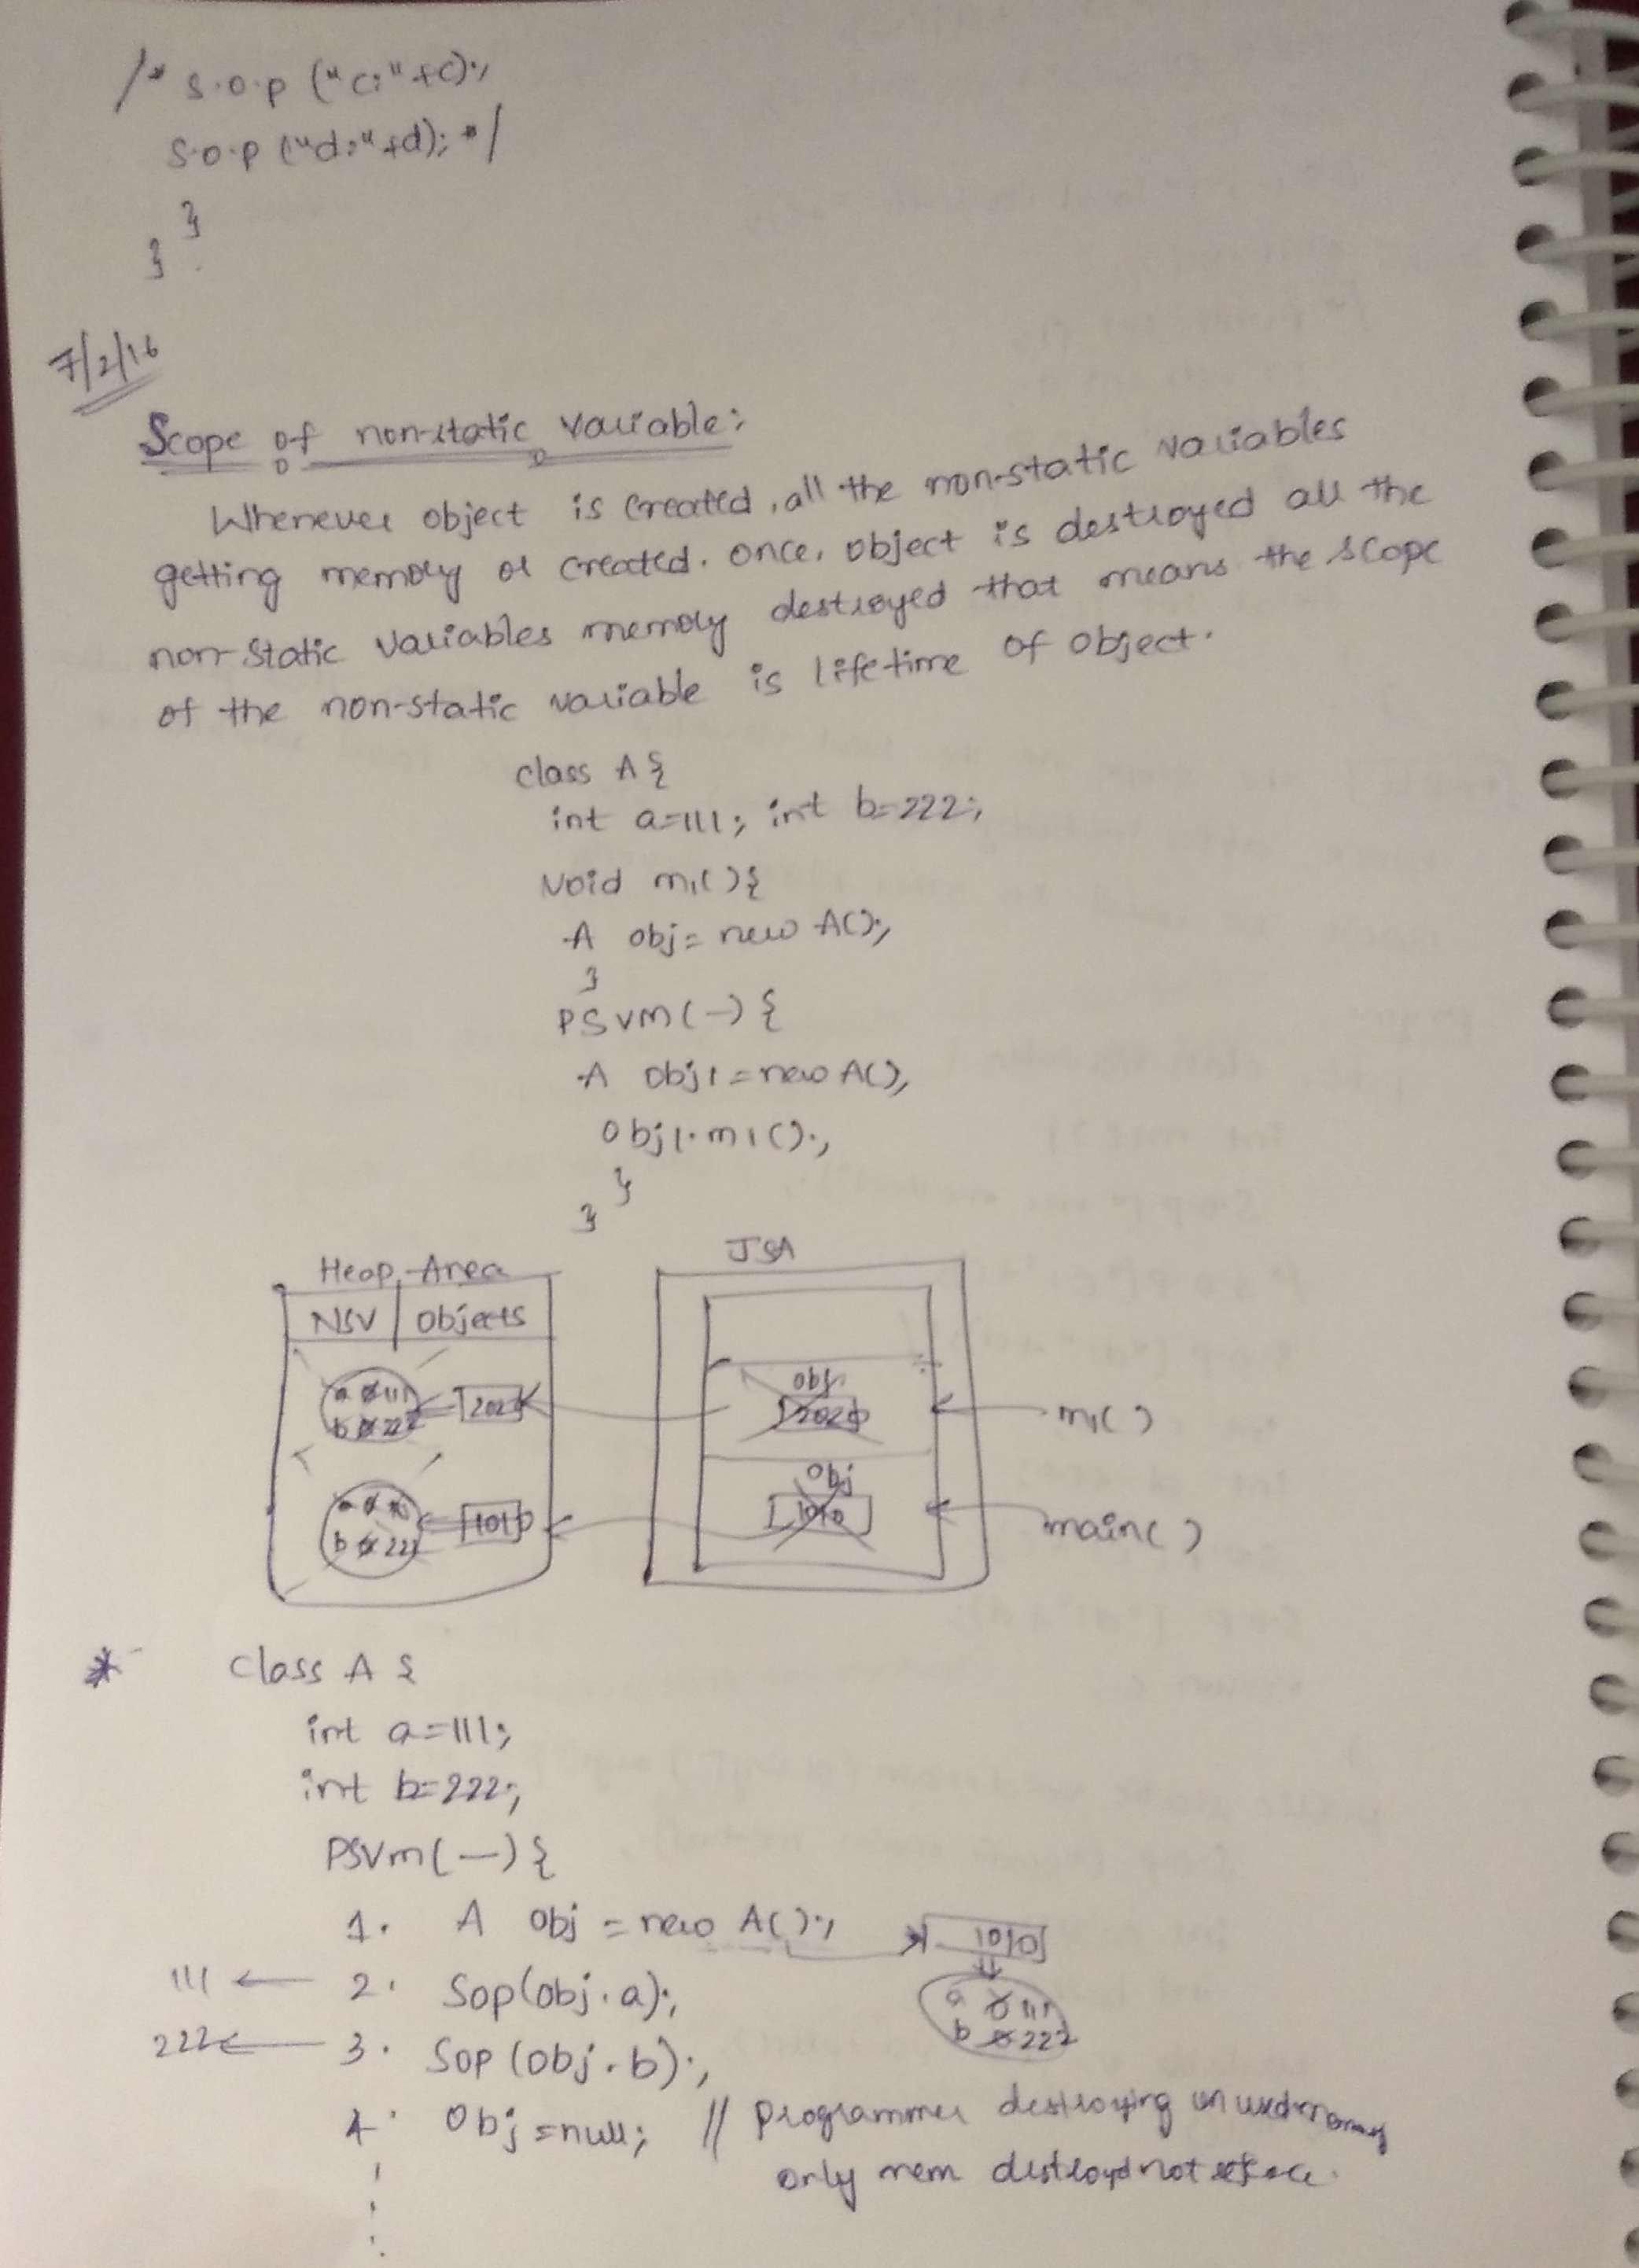 /* S.o.p ("c:"+c);
S.o.p ("d:"+d); */
}
}
7/2/16
Scope of non-static variable:
Whenever object is created, all the non-static variables
getting memory or created. once, object is destroyed all the
non-static variables memory destroyed that means the scope
of the non-static variable is life time of object.
class A {
int a=111; int b=222;
void m1() {
A obj = new A();
}
PSVM(-) {
A obj1 = new A();
obj1.m1();
}
}
Heap Area
JSA
NSV | Objects
a 0 111
b 0 222
2020
obj
2020
m1()
obj
1010
main()
a 0
b 0 222
1010
* class A {
int a=111;
int b=222;
PSVm(-) {
1. A obj = new A(); 1010
111 ← 2. Sop(obj.a); a 0 111
222 ← 3. Sop(obj.b); b 0 222
4. Obj =null; // programmer destroying unused memory
only mem distroyd not